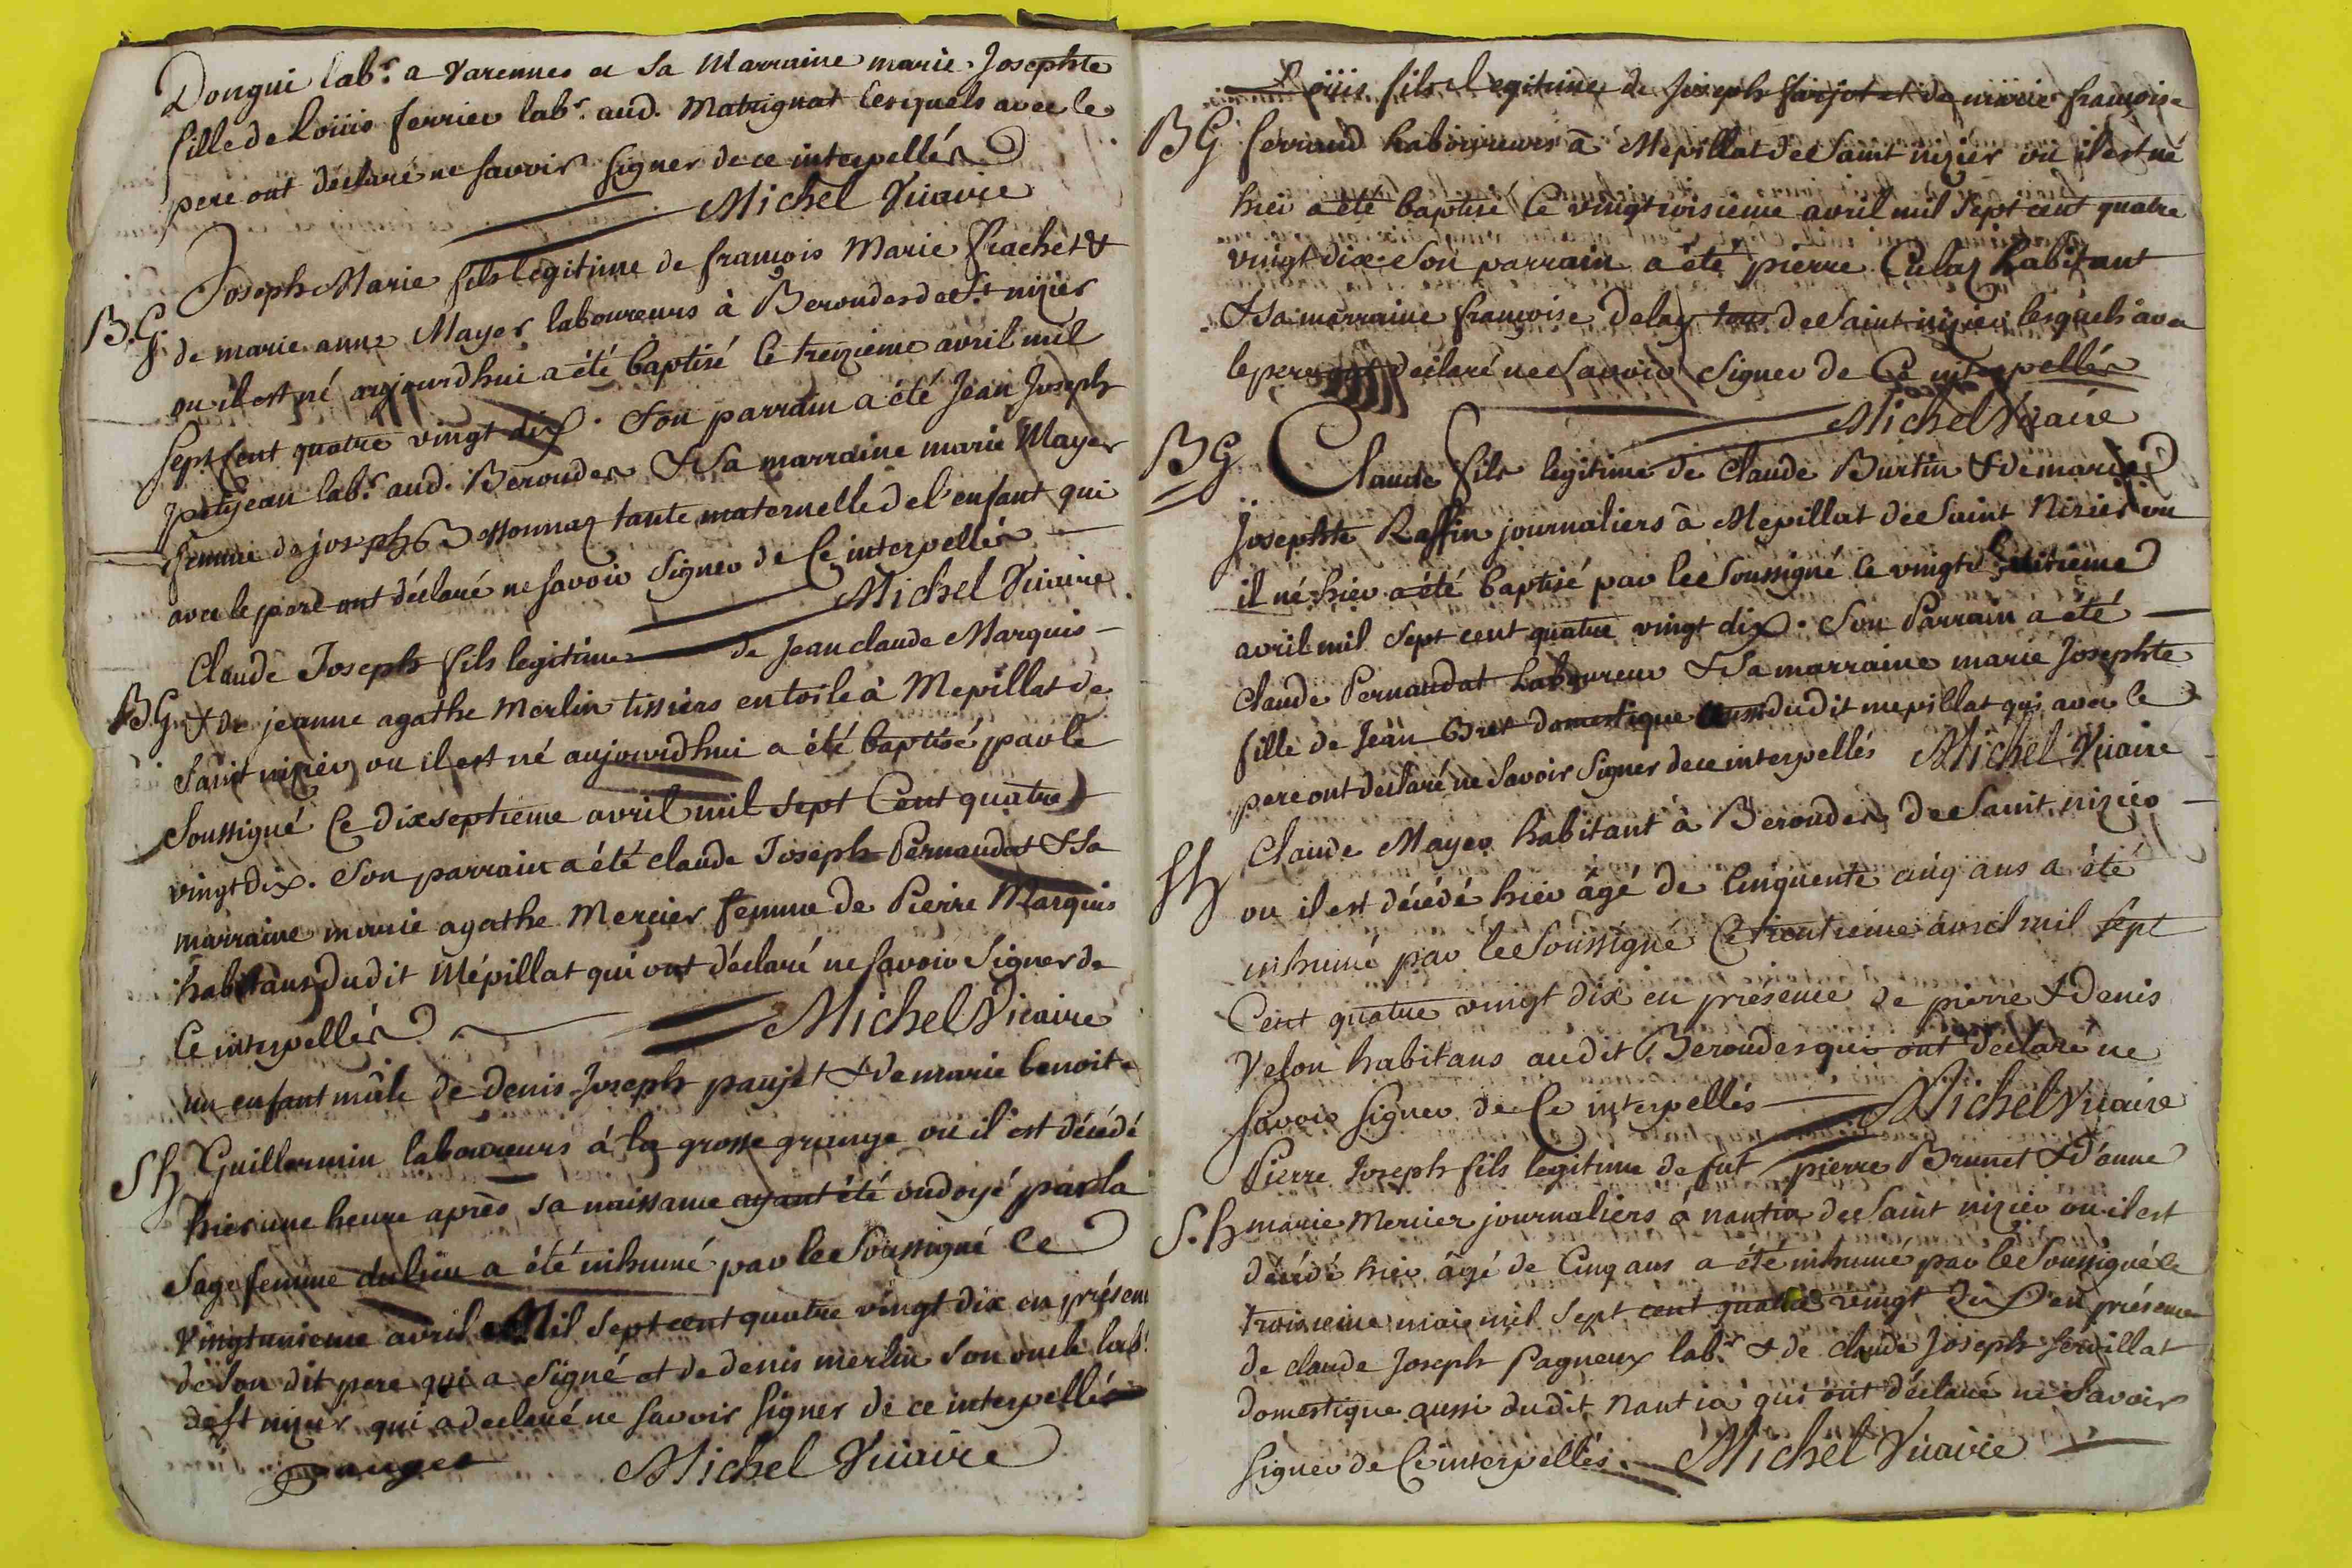 Dongui labr. a Varennes et Sa Marraine marie Josephte
fille de Loüis ferrier labr. aud. Matrignat lesquels avec le
pere ont déclaré ne savoir signer de ce interpellés
Michel Vicaire
Joseph Marie fils legitime de francois Marie Frachet &
B.G. de marie anne Mayer laboureurs à Berondes de St nizier
ou il est né aujourdhui a été baptisé le treizieme avril mil
sept cent quatre vingt dix. Son parrain a été Jean Joseph
petitjean labr. aud. Berondes & Sa marraine marie Mayer
femme de joseph Monnaz tante maternelle de l'enfant qui
avec le pere ont déclaré ne savoir signer de Ce interpellés
Michel Vicaire
Claude Joseph fils legitime de Jean claude Marquis
B.G. & de jeanne agathe Merlin tissiers en toile à Mepillat de
Saint nizier ou il est né aujourdhui a été baptisé par le
Soussigné Ce dixseptieme avril mil sept Cent quatre
vingt dix. Son parrain a été claude Joseph Pernaudat & Sa
marraine marie agathe Mercier femme de Pierre Marquis
habitans dudit Mépillat qui ont déclaré ne savoir Signer de
Ce interpellés
Michel Vicaire
un enfant mâle de denis Joseph paujet & de marie benoite
Sh Guillermin laboureurs á la grosse grange ou il est décédé
hier une heure après sa naissance ayant été ondoyé par la
Sage femme du lieu a été inhumé par le Soussigné Ce
vingtunieme avril Mil Sept cent quatre vingt dix en présence
de Son dit pere qui a signé et de denis merlin Son oncle labr.
de St nizier qui a declaré ne savoir signer de ce interpellés
Pauget Michel Vicaire
Loüis fils legitime de Joseph farjot et de marie françoise
BG ferrand Laboureurs à Mepillat de Saint nizier ou il est né
hier a été baptisé Ce vingt troisieme avril mil Sept cent quatre
vingt dix. Son parrain a été pierre habitant
& Sa marraine françoise Delay de Saint nizier lesquels avec
le pere ont déclaré ne Savoir Signer de Ce interpellés
Michel Vicaire
BG Claude fils legitime de Claude Burtin & de marie
Josephte Raffin journaliers à Mepillat de Saint Nizier ou
il né hier a été baptisé par le Soussigné le vingt huitieme
avril mil Sept cent quatre vingt dix. Son Parrain a été
Claude Pernaudat Laboureur & Sa marraine marie Josephte
fille de Jean Bret domestique aussi dudit mepillat qui avec le
pere ont déclaré ne Savoir Signer de ce interpellés Michel Vicaire
Sh Claude Mayer habitant à Berondes de Saint nizier
ou il est décédé hier âgé de Cinquente cinq ans a été
inhumé par le Soussigné Ce trentieme avril mil Sept
Cent quatre vingt dix en presence de pierre & denis
Velon habitans audit Berondes qui ont déclaré ne
Savoir Signer de Ce interpellés Michel Vicaire
Pierre Joseph fils legitime de fut pierre Brunet & d'anne
S.h marie Mercier journaliers à nantia de Saint nizier ou il est
décédé hier âgé de Cinq ans a été inhumé par le Soussigné le
troisieme mai mil Sept cent quatre vingt dix en présence
de claude Joseph Pagneux labr. & de claude Joseph Servillat
domestique aussi dudit Nantia qui ont déclaré ne Savoir
Signer de Ce interpellés. Michel Vicaire